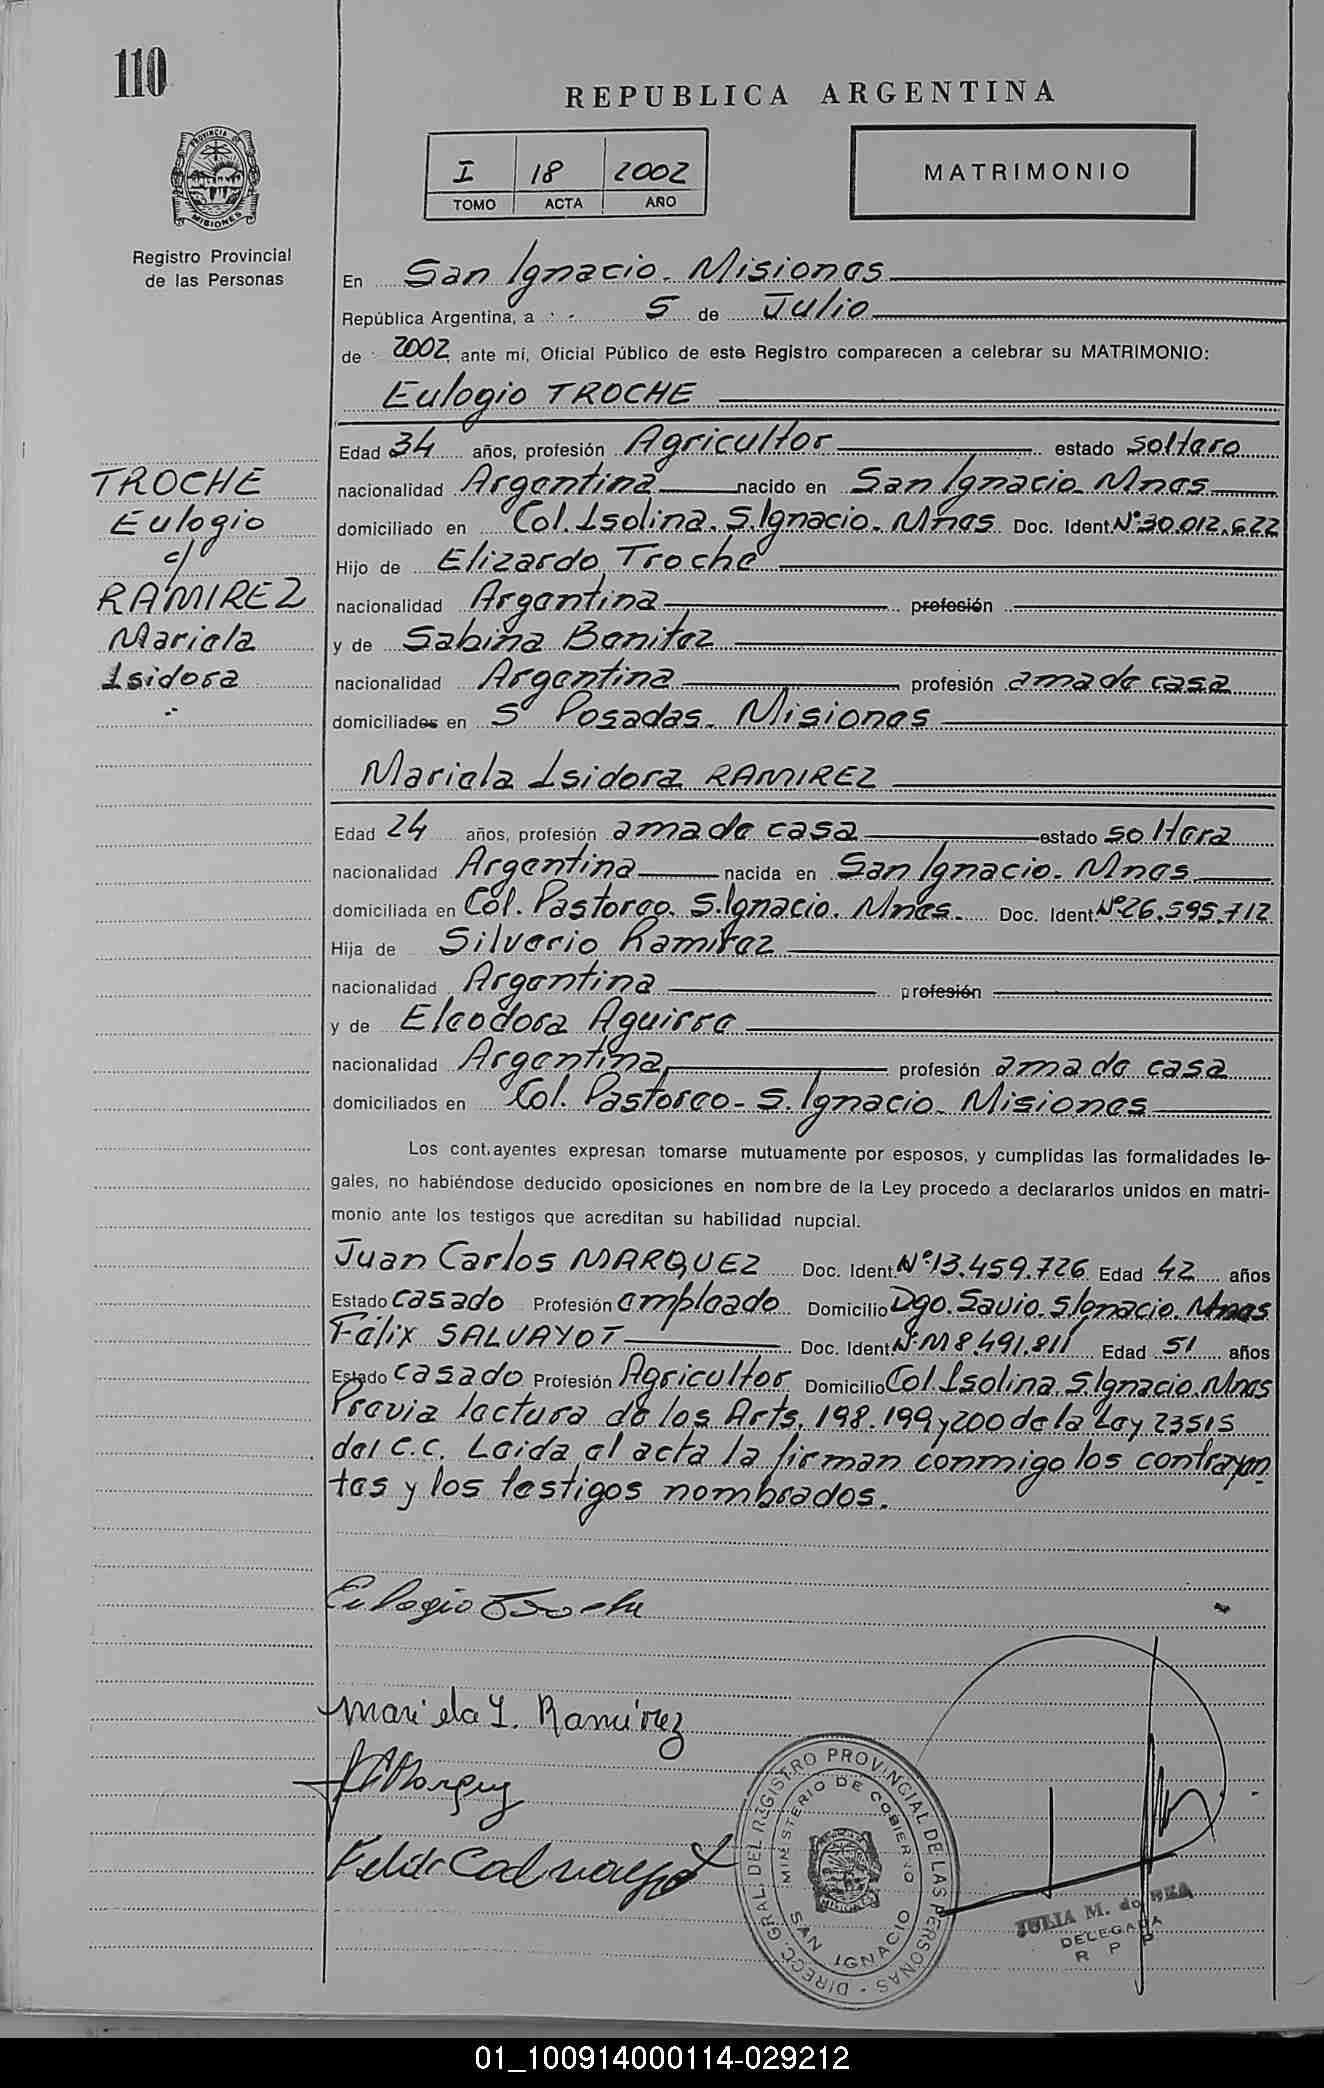 110
REPUBLICA ARGENTINA
I 18 2002
TOMO ACTA AÑO
MATRIMONIO
PROVINCIA DE MISIONES
Registro Provincial
de las Personas
En San Ignacio - Misiones
República Argentina, a 5 de Julio
de 2002 ante mí, Oficial Público de este Registro comparecen a celebrar su MATRIMONIO:
Eulogio TROCHE
Edad 34 años, profesión Agricultor estado soltero
nacionalidad Argentina nacido en San Ignacio - Mnes
domiciliado en Col. Isolina. S. Ignacio - Mnes Doc. Ident. Nº 30.012.622
Hijo de Elizardo Troche
nacionalidad Argentina profesión
y de Sabina Benitez
nacionalidad Argentina profesión ama de casa
domiciliados en Posadas - Misiones
TROCHE
Eulogio
c/
RAMIREZ
Mariela
Isidora
Mariela Isidora RAMIREZ
Edad 24 años, profesión ama de casa estado soltera
nacionalidad Argentina nacida en San Ignacio - Mnes
domiciliada en Col. Pastoreo. S. Ignacio. Mnes. Doc. Ident. Nº 26.595.712
Hija de Silverio Ramirez
nacionalidad Argentina profesión
y de Eleodora Aguirre
nacionalidad Argentina profesión ama de casa
domiciliados en Col. Pastoreo - S. Ignacio - Misiones
Los cont.ayentes expresan tomarse mutuamente por esposos, y cumplidas las formalidades le-
gales, no habiéndose deducido oposiciones en nombre de la Ley procedo a declararlos unidos en matri-
monio ante los testigos que acreditan su habilidad nupcial.
Juan Carlos MARQUEZ Doc. Ident. Nº 13.459.726 Edad 42 años
Estado casado Profesión empleado Domicilio Dgo. Savio. S. Ignacio. Mnes
Félix SALVAYOT Doc. Ident. Nº M 8.491.811 Edad 51 años
Estado casado Profesión Agricultor Domicilio Col. Isolina. S. Ignacio. Mnes
Previa lectura de los Arts. 198.199 y 200 de la Ley 23515
del C.C. Leida el acta la firman conmigo los contrayen-
tes y los testigos nombrados.
Eulogio Troche
Mariela I. Ramírez
DIRECC. GRAL. DEL REGISTRO PROVINCIAL DE LAS PERSONAS
MINISTERIO DE GOBIERNO
SAN IGNACIO
JULIA M. de REA
DELEGADA
R P P
01_100914000114-029212